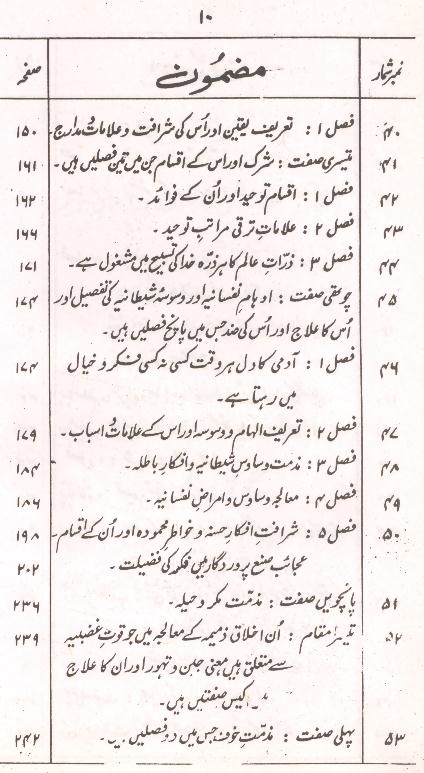 ۱۰
نمبر شمار مضمون صفحہ
۴۰ فصل ۱ : تعریف یقین اور اُس کی شرافت و علامات و مدارج۔ ۱۵۰
۴۱ تیسری صفت : شرک اور اس کے اقسام جن میں تین فصلیں ہیں۔ ۱۶۱
۴۲ فصل ۱ : اقسام توحید اور اُن کے فوائد۔ ۱۶۲
۴۳ فصل ۲ : علاماتِ ترقی مراتبِ توحید۔ ۱۶۶
۴۴ فصل ۳ : ذرّاتِ عالم کا ہر ذرّہ خدا کی تسبیح میں مشغول ہے۔ ۱۷۱
۴۵ چوتھی صفت : اوہامِ نفسانیہ اور وسوسۂ شیطانیہ کی تفصیل اور ۱۷۴
اُس کا علاج اور اُس کی ضد جس میں پانچ فصلیں ہیں۔
۴۶ فصل ۱ : آدمی کا دل ہر وقت کسی نہ کسی فکر و خیال ۱۷۴
میں رہتا ہے۔
۴۷ فصل ۲ : تعریف الہام و وسوسہ اور اس کے علامات و اسباب۔ ۱۷۹
۴۸ فصل ۳ : مذمت وساوسِ شیطانیہ و افکارِ باطلہ۔ ۱۸۴
۴۹ فصل ۴ : معالجہ وساوس و امراضِ نفسانیہ۔ ۱۸۶
۵۰ فصل ۵ : شرافت افکارِ حسنہ و خواطرِ محمودہ اور اُن کے اقسام۔ ۱۹۸
عجائب صنع پروردگار میں فکر کی فضیلت۔ ۲۰۲
۵۱ پانچویں صفت : مذمّت مکر و حیلہ۔ ۲۳۶
۵۲ تیسرا مقام : اُن اخلاق ذمیمہ کے معالجہ میں جو قوتِ غضبیہ ۲۳۹
سے متعلق ہیں یعنی جبن و تہور اور ان کا علاج
اکیس صفتیں ہیں۔
۵۳ پہلی صفت : مذمّتِ خوف جس میں دو فصلیں ہیں۔ ۲۴۲